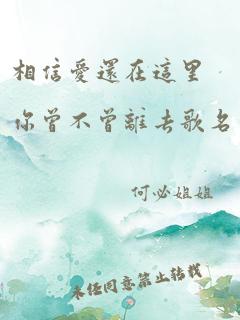 相信愛還在這里
你曾不曾離去歌名
何必姐姐
未经同意禁止转载